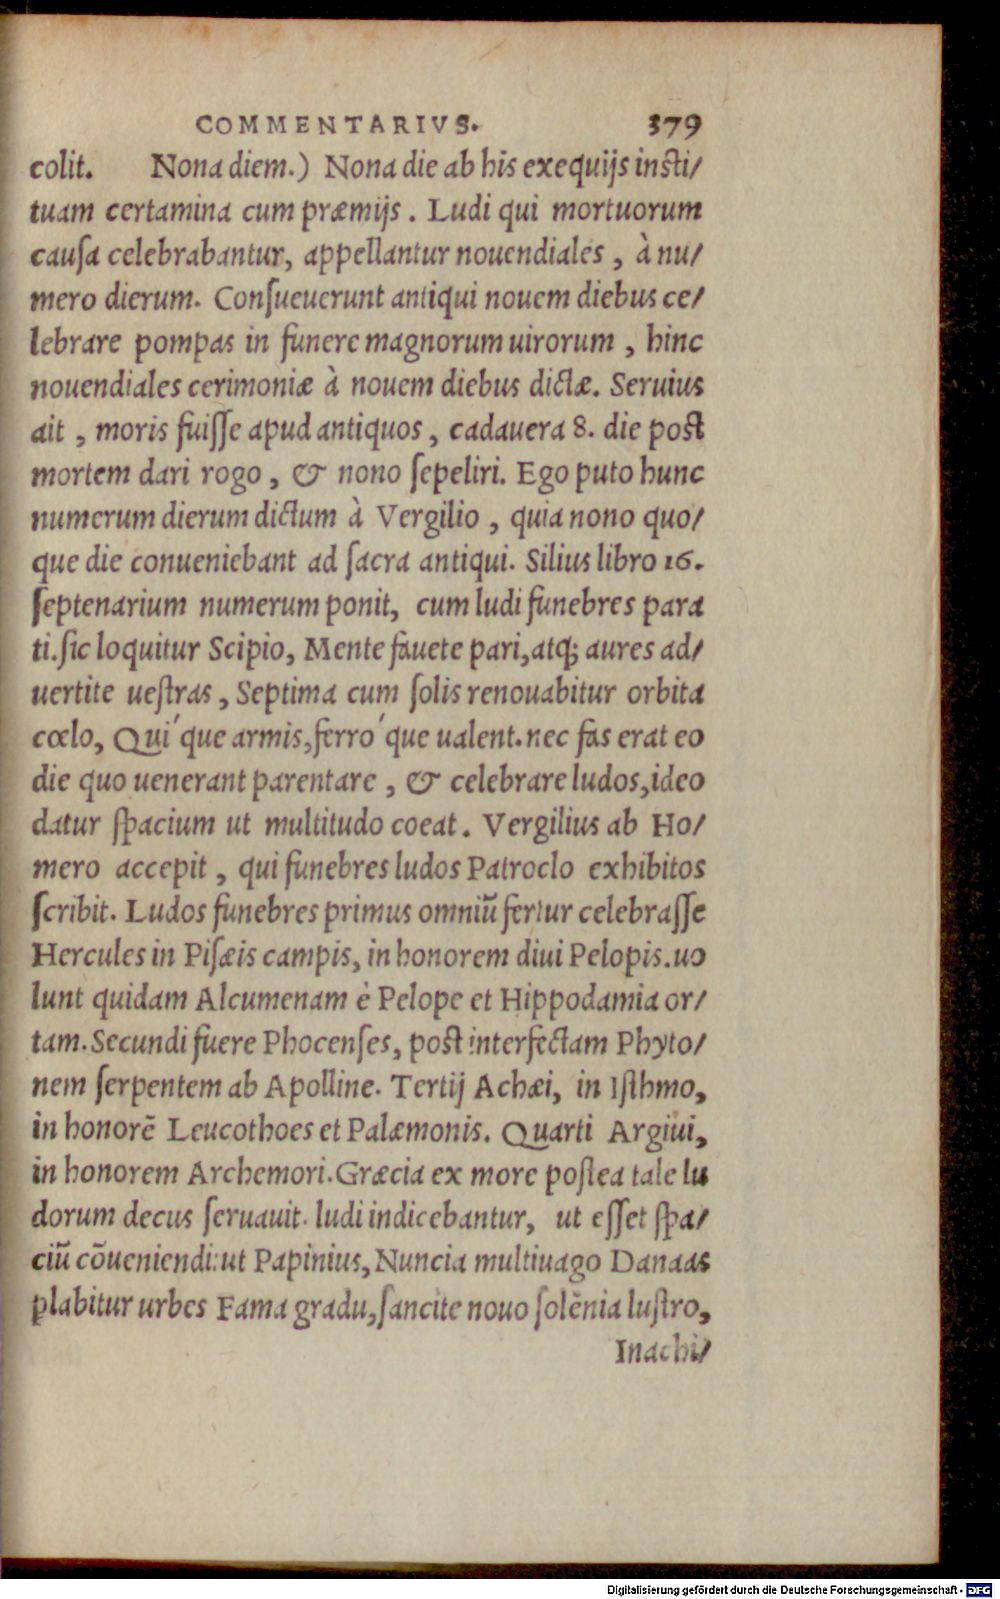 COMMENTARIVS. 379
colit. Nona diem.) Nona die ab his exequijs insti/
tuam certamina cum præmijs. Ludi qui mortuorum
cauſa celebrabantur, appellantur nouendiales, à nu/
mero dierum. Conſueuerunt antiqui nouem diebus ce/
lebrare pompas in funere magnorum uirorum, hinc
nouendiales cerimoniæ à nouem diebus dictæ. Seruius
ait, moris fuiſſe apud antiquos, cadauera 8. die post
mortem dari rogo, & nono ſepeliri. Ego puto hunc
numerum dierum dictum à Vergilio, quia nono quo/
que die conueniebant ad ſacra antiqui. Silius libro 16.
ſeptenarium numerum ponit, cum ludi funebres para
ti. ſic loquitur Scipio, Mente fauete pari, atq; aures ad/
uertite ueſtras, Septima cum ſolis renouabitur orbita
cœlo, Qui´que armis, ferro´que ualent. nec fas erat eo
die quo uenerant parentare, & celebrare ludos, ideo
datur ſpacium ut multitudo coeat. Vergilius ab Ho/
mero accepit, qui funebres ludos Patroclo exhibitos
ſcribit. Ludos funebres primus omniũ fertur celebraſſe
Hercules in Piſæis campis, in honorem diui Pelopis. uo
lunt quidam Alcumenam è Pelope et Hippodamia or/
tam. Secundi fuere Phocenſes, post interfectam Phyto/
nem ſerpentem ab Apolline. Tertij Achæi, in Iſthmo,
in honorẽ Leucothoes et Palæmonis. Quarti Argiui,
in honorem Archemori. Græcia ex more poſtea tale lu
dorum decus ſeruauit. ludi indicebantur, ut eſſet ſpa/
ciũ cõueniendi: ut Papinius, Nuncia multiuago Danaas
plabitur urbes Fama gradu, ſancite nouo ſolẽnia luſtro,
Inachi/
Digitalisierung gefördert durch die Deutsche Forschungsgemeinschaft - DFG